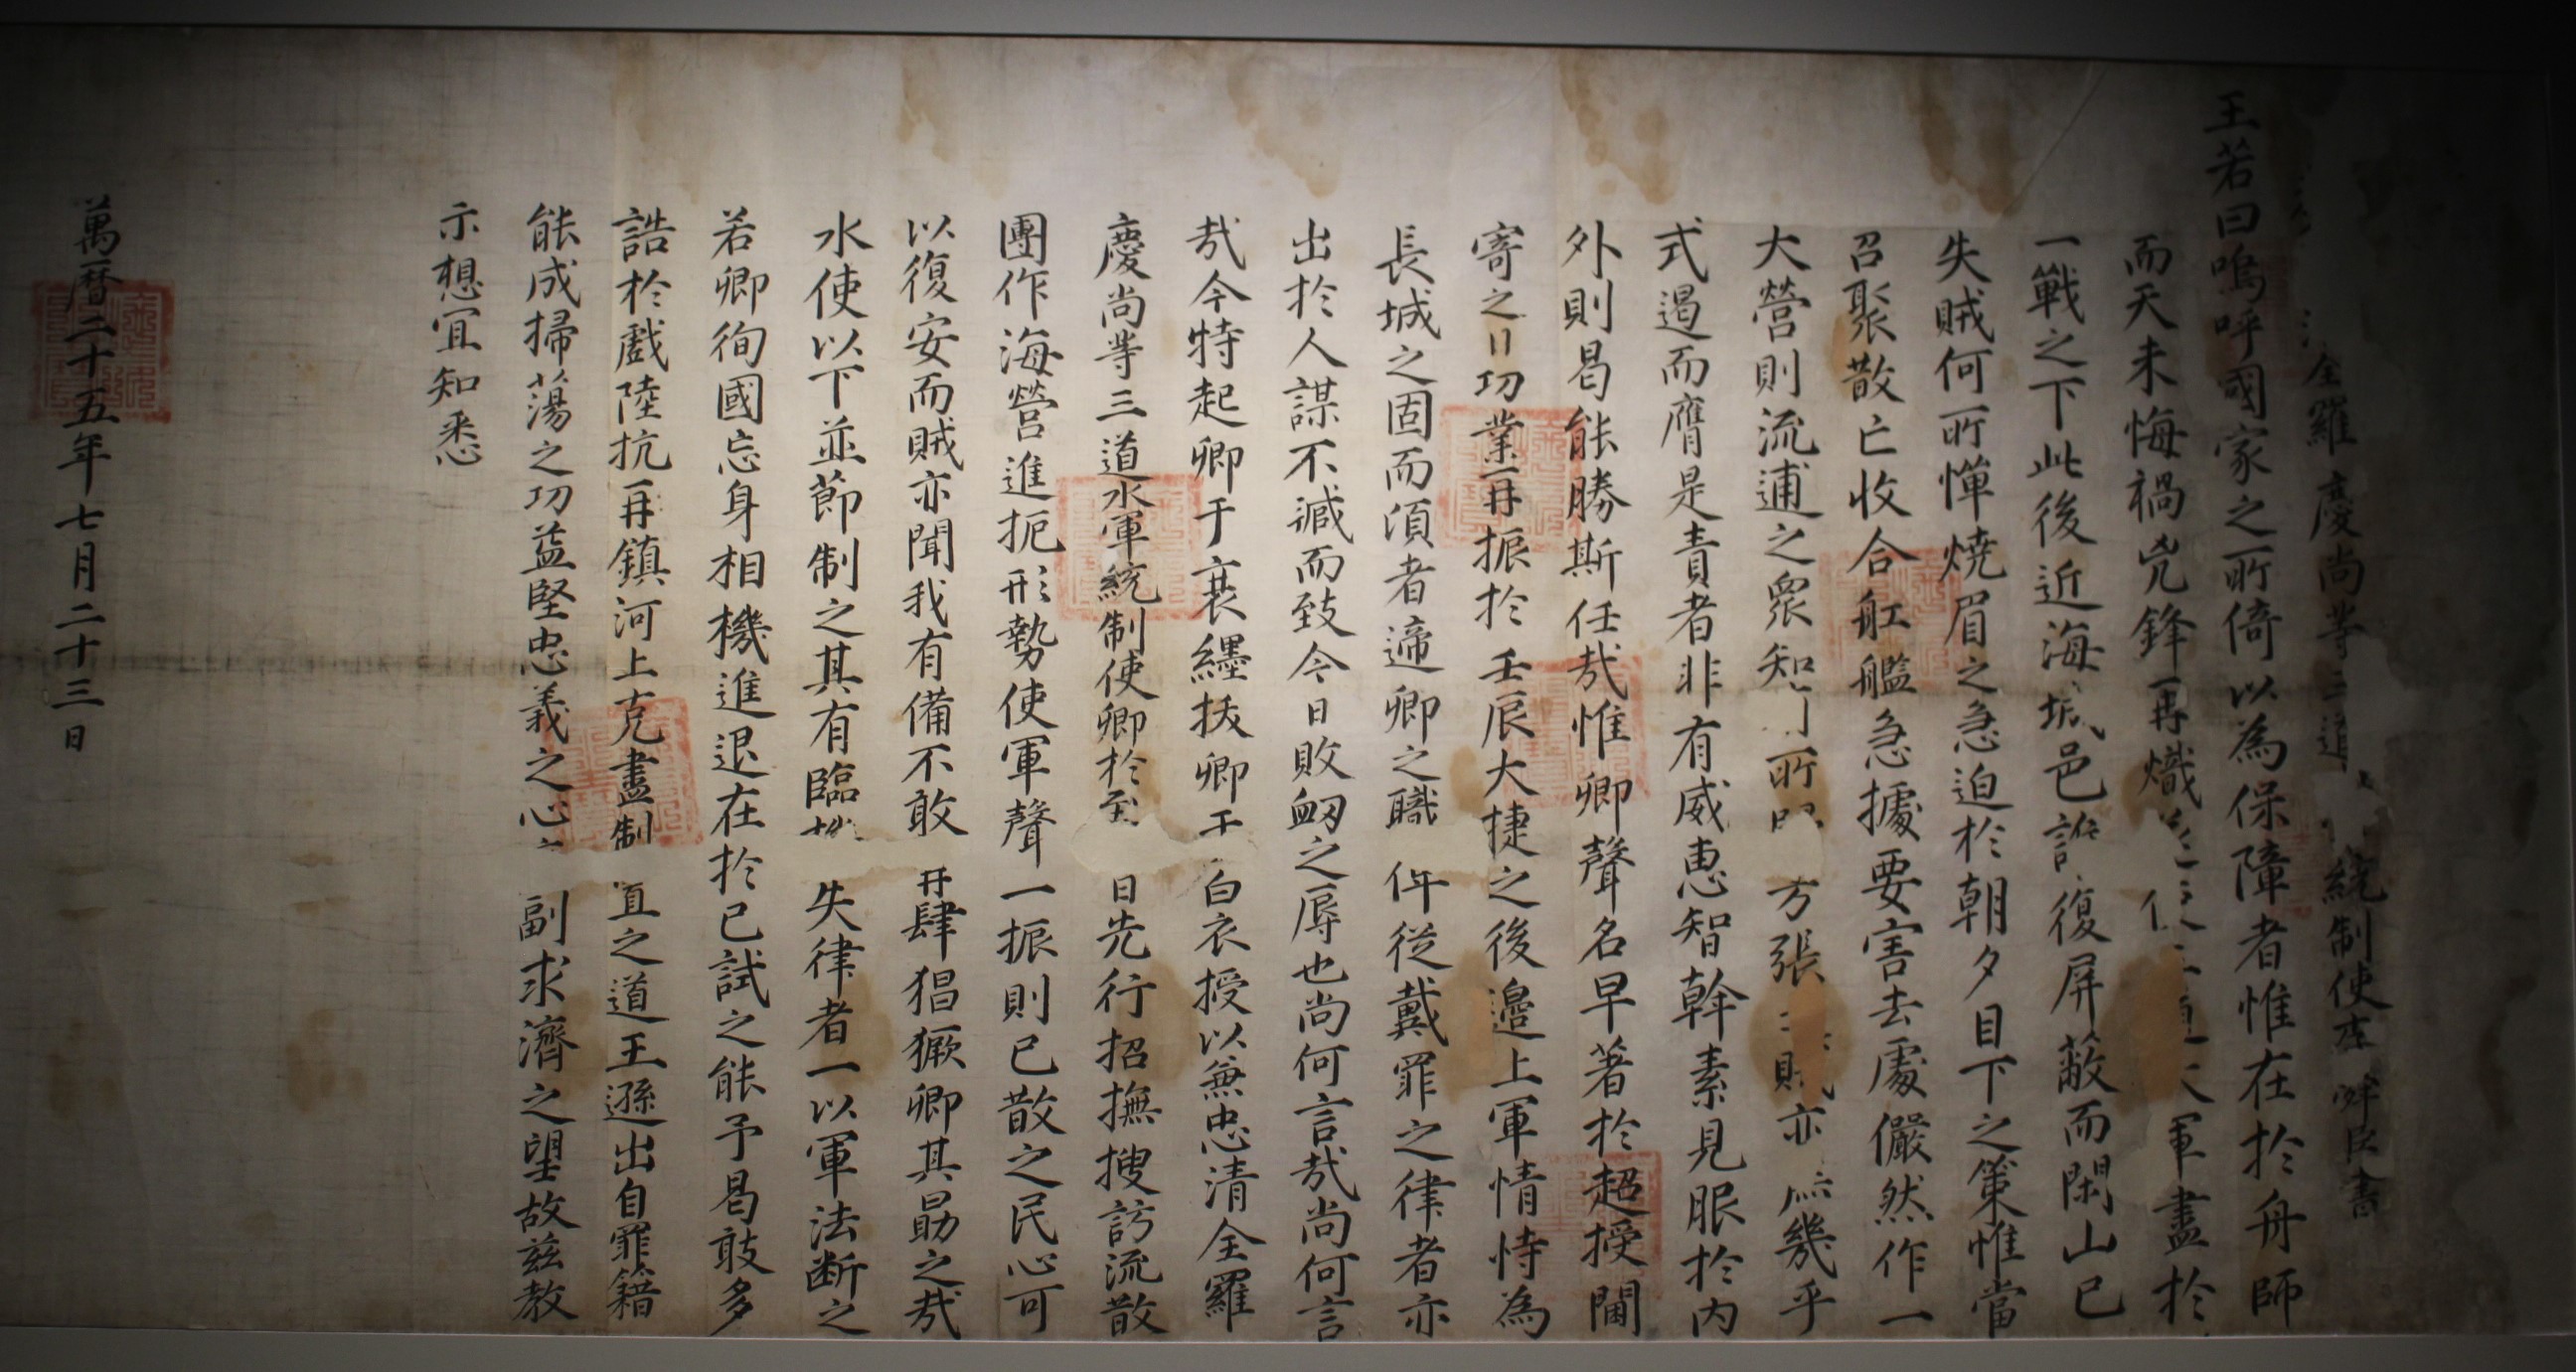 全羅慶尚等三道統制使李舜臣書
王若曰嗚呼國家之所倚以為保障者惟在於舟師
而天未悔禍兇鋒再熾軍盡於
一戰之下此後近海城邑誰復屏蔽而閑山已
失賊何所憚燒眉之急迫於朝夕目下之策惟當
召聚散亡收合舡艦急據要害去處儼然作一
大營則流逋之衆知所方張賊亦幾乎
式遏而膺是責者非有威惠智幹素見服於內
外則曷能勝斯任哉惟卿聲名早著於超授閫
寄之日功業再振於壬辰大捷之後邊上軍情恃為
長城之固而湏者遞卿之職俾從戴罪之律者亦
出於人謀不減而致今日敗衂之辱也尚何言哉尚何言
哉今特起卿于衰絰拔卿于白衣授以兼忠清全羅
慶尚等三道水軍統制使卿於至日先行招撫搜訪流散
團作海營進扼形勢使軍聲一振則已散之民心可
以復安而賊亦聞我有備不敢再肆猖獗卿其勗之哉
水使以下並節制之其有臨機失律者一以軍法断之
若卿徇國忘身相機進退在於已試之能予曷敢多
誥於戲陸抗再鎮河上克盡制置之道王遜出自罪籍
能成掃蕩之功益堅忠義之心副求濟之望故茲教
示想宜知悉
萬曆二十五年七月二十三日